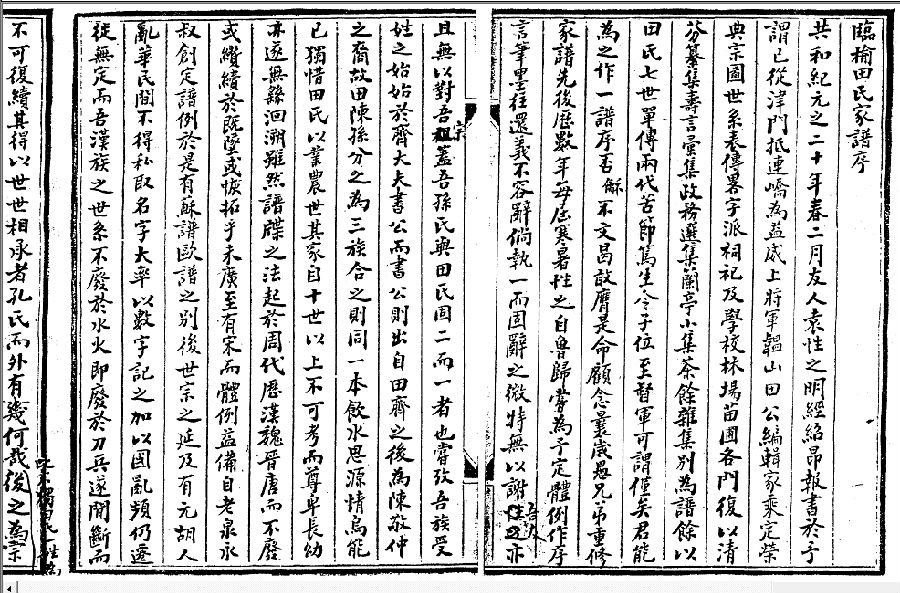 臨榆田氏家譜序
共和紀元之二十年春二月友人袁性之明經紹昂報書於予
謂已從津門抵連嶠為益威上將軍韞山田公編輯家乘定榮
典宗圖世系表傳畧字派祠祀及學校林場苗圃各門復以清
芬纂集壽言彙集政務選集蘭亭小集茶餘雜集別為譜餘以
田氏七世單傳兩代苦節篤生令子位至督軍可謂僅矣君能
為之作一譜序否穌不文曷敢膺是命顧念曩歲愚兄弟重修
家譜先後歷數年每屆寒暑性之自魯歸嘗為予定體例作序
言筆墨往還義不容辭倘執一而固辭之微特無以謝性之亦
且無以對吾祖蓋吾孫氏與田氏固二而一者也嘗攷吾族受
姓之始始於齊大夫書公而書公則出自田齊之後為陳敬仲
之裔故田陳孫分之為三族合之則同一本飲水思源情烏能
已獨惜田氏以業農世其家自十世以上不可考而尊卑長幼
亦遂無繇洄溯雖然譜牒之法起於周代歷漢魏晉唐而不廢
或纘續於既墜或恢拓乎未廣至有宋而體例益備自老泉永
叔創定譜例於是有蘇譜歐譜之別後世宗之延及有元胡人
亂華民間不得私取名字大率以數字記之加以國亂頻仍遷
徙無定而吾漢族之世系不廢於水火即廢於刀兵遂間斷而
不可復續其得以世世相承者孔氏而外有幾何哉後之為宗